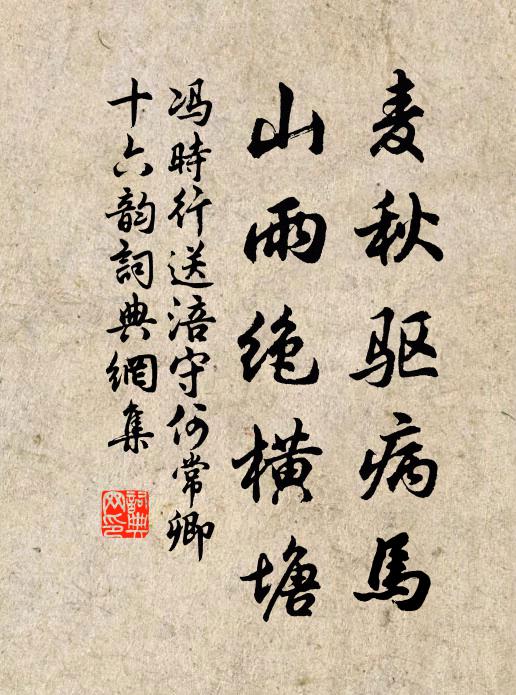 麦秋驱病马
山雨绝横塘
冯時行送涪守何常卿
十六韵詞典網集
詞典网印